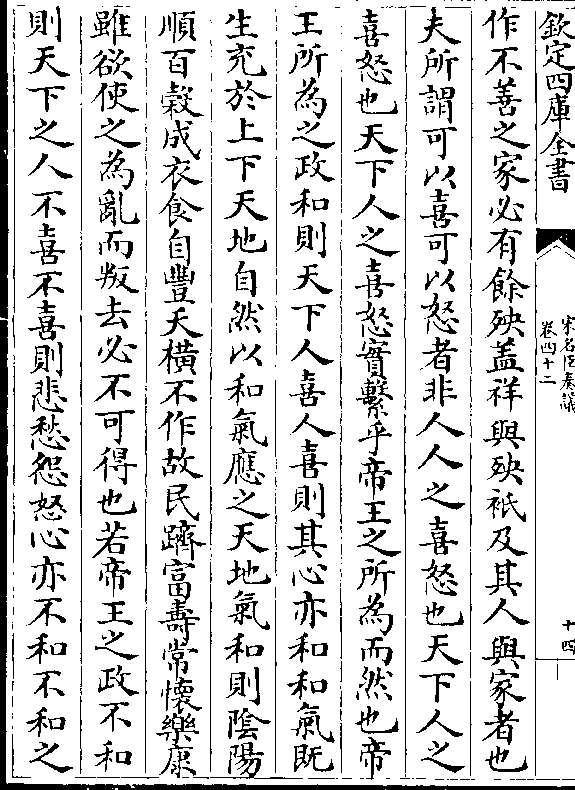 欽定四庫全書
宋名臣奏議
卷四十二
十四
作不善之家必有餘殃蓋祥與殃祇及其人與家者也
夫所謂可以喜可以怒者非人人之喜怒也天下人之
喜怒也天下人之喜怒實繫乎帝王之所為而然也帝
王所為之政和則天下人喜人喜則其心亦和和氣既
生充於上下天地自然以和氣應之天地氣和則陰陽
順百穀成衣食自豐夭橫不作故民躋富壽常懷樂康
雖欲使之為亂而叛去必不可得也若帝王之政不和
則天下之人不喜不喜則悲愁怨怒心亦不和不和之